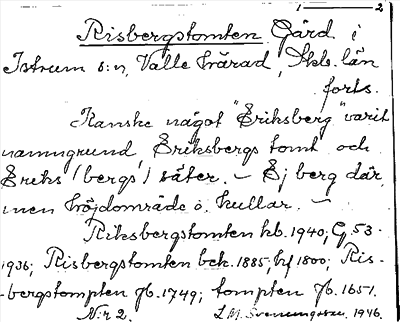 1 — 2
Risbergstomten Gård i
Istrum s:n, Valle härad, Skb. län
forts.
Kanske något "Eriksberg" varit
namngrund Eriksbergs tomt och
Ereks (bergs) säter. – Ej berg där,
men höjdområde o. kullar. –
Riksbergstomten hb. 1940; G, 53.
1936; Risbergstomten bek. 1885; hf 1800; Ris-
bergstompten Jb. 1749; tompten Jb. 1651.
N:r 2. 1946.